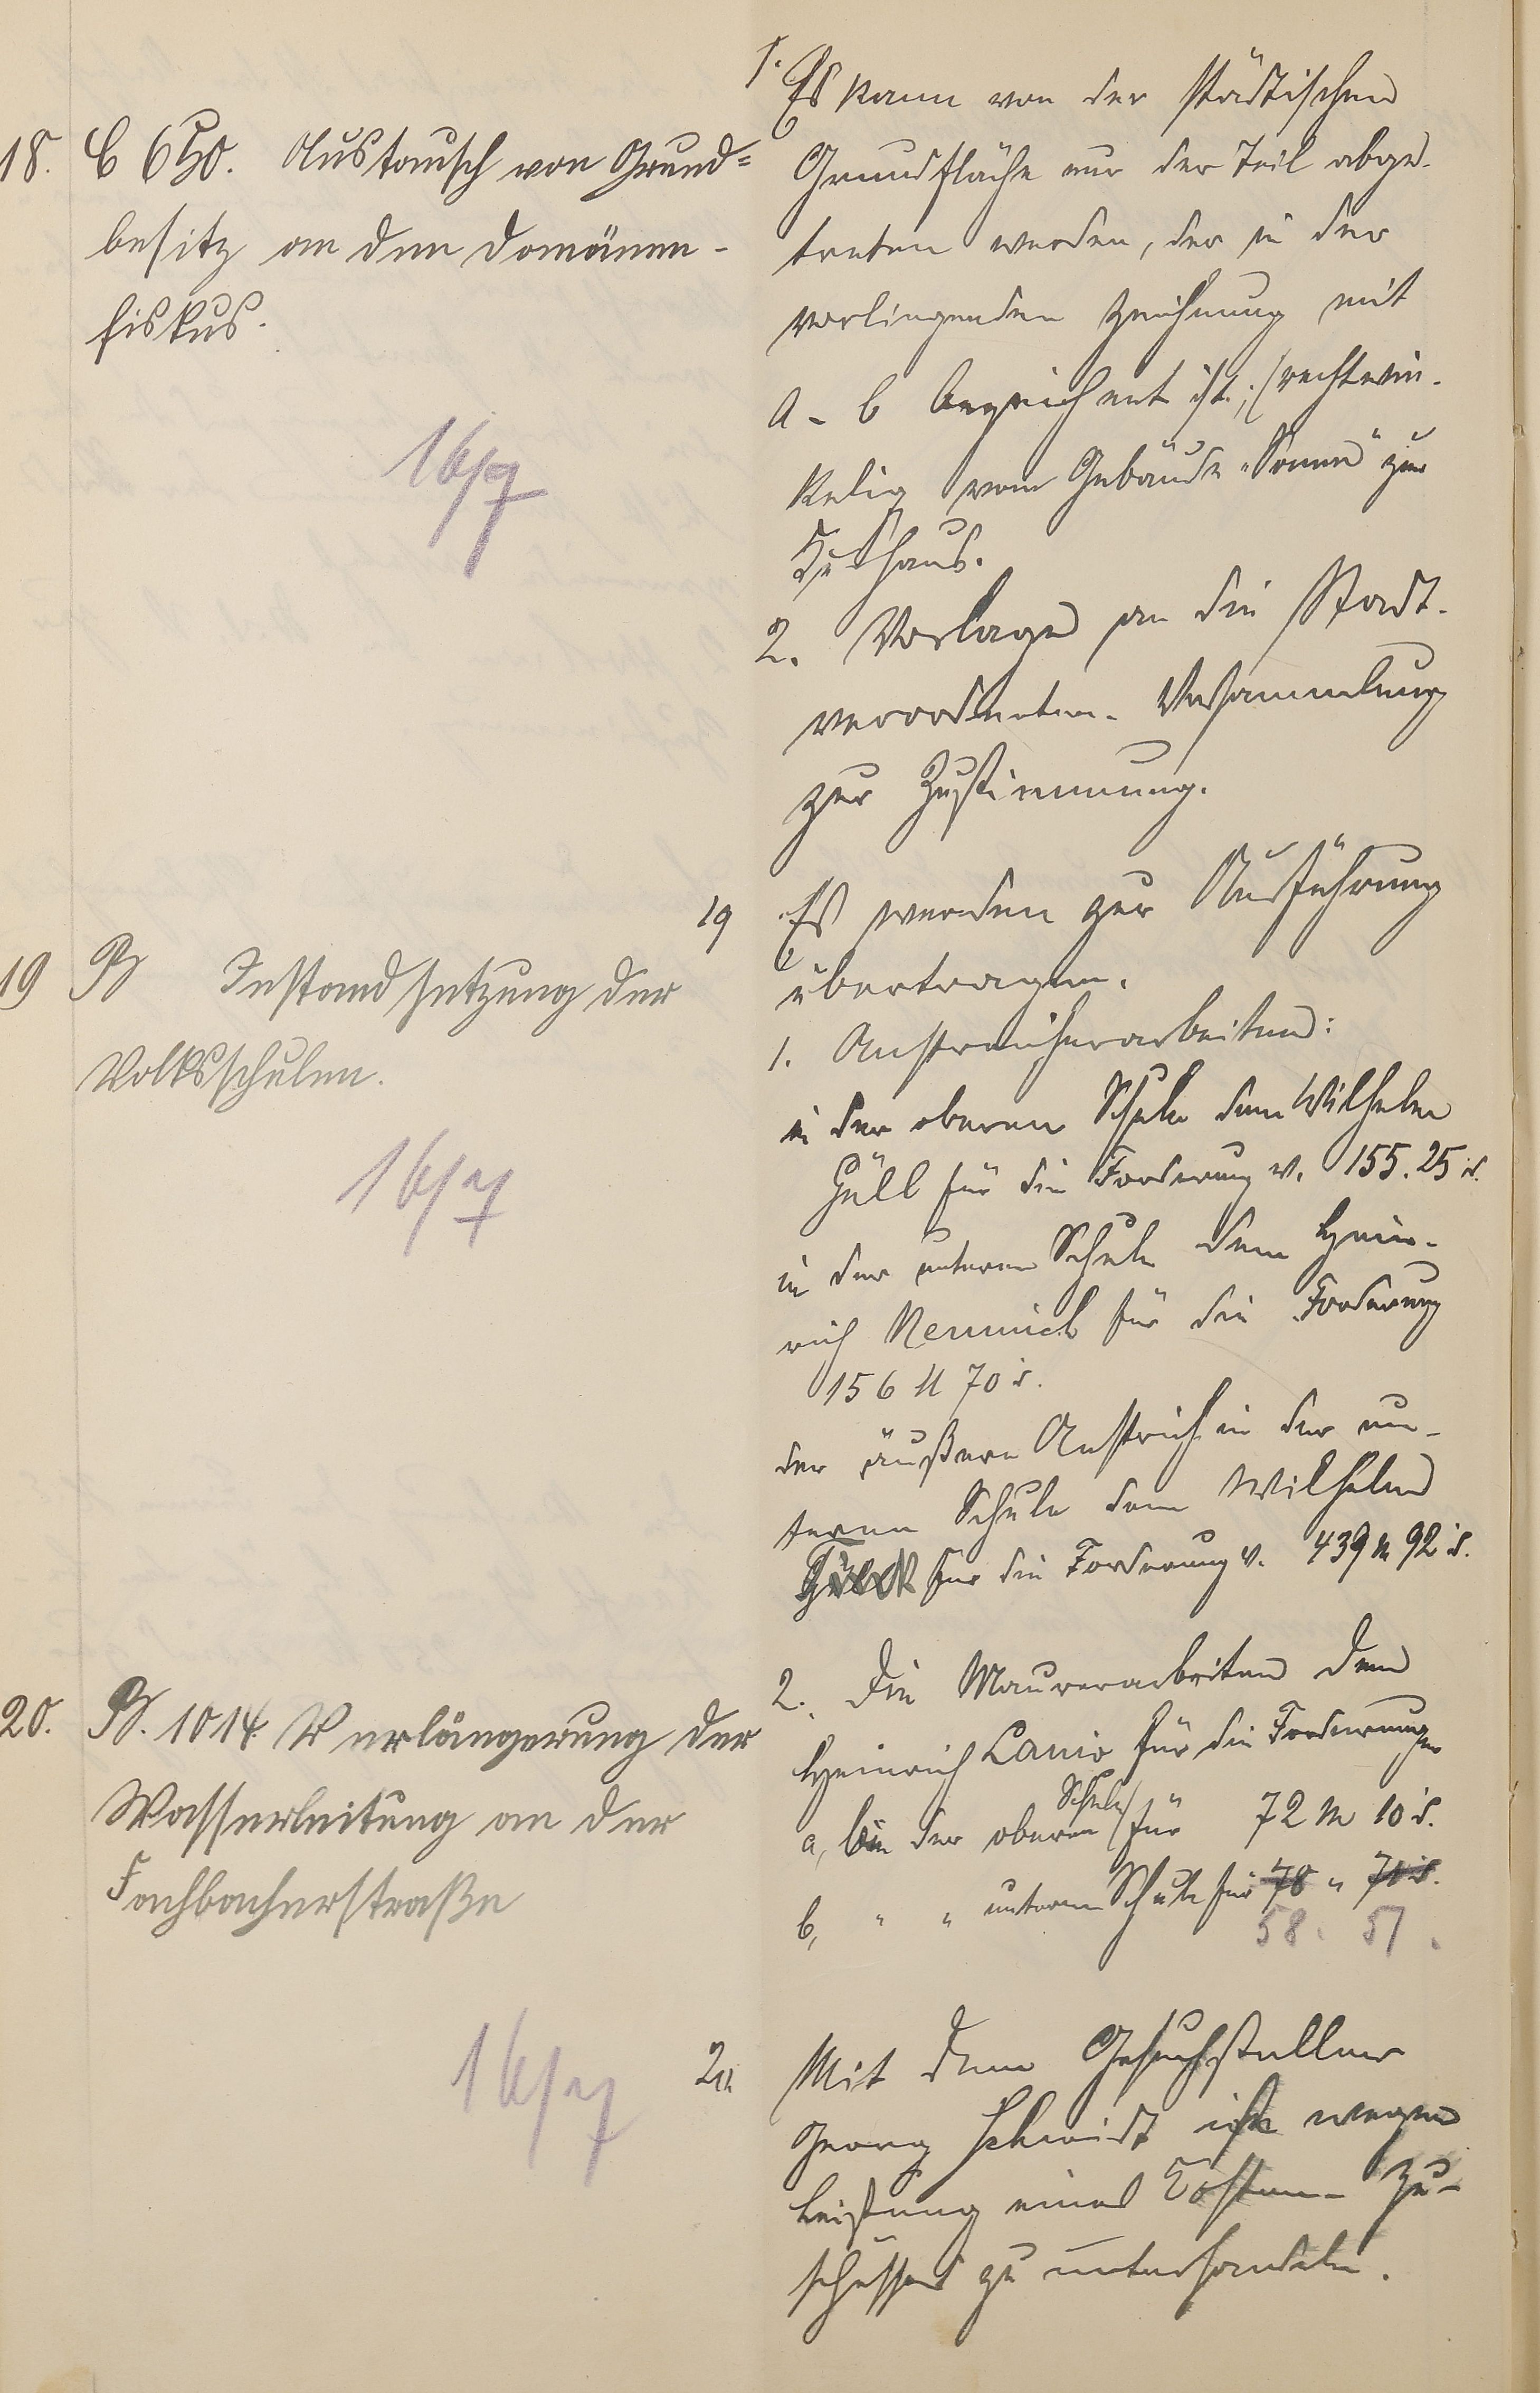 18. C 650. Austausch von Grund=
besitz an den Domänen-
fiskus.
16/7
1. Es kann von der städtischen
Grundfläche nur der Teil abge-
treten werden, der in der
vorliegenden Zeichnung mit
a - b bezeichnet ist; (rechtwin-
kelig vom Gebäude "Sonne" zum
Kurhaus.
2. Vorlage an die Stadt-
verordneten-Versammlung
zur Zustimmung.
19 B Instandsetzung der
Volksschulen.
16/7
19 Es werden zur Ausführung
übertragen.
1. Anstreicherarbeiten:
in der oberen Schule dem Wilhelm
Güll für die Forderung v. 155.25 d.
in der unteren Schule dem Hein-
rich Remmich für die Forderung
156 M 70 d.
der äußere Anstrich in der un-
teren Schule dem Wilhelm
für die Forderung v. 439 M 92 d.
2. Die Maurerarbeiten dem
Heinrich Lanio für die Forderungen
a, bei der oberen Schule für 72 M 10 d.
b, " " unteren Schule für 78 " 71 d.
58. 51.
20. B. 1014. Verlängerung der
Wasserleitung an der
Fachbacherstraße
16/7
20. Mit dem Gesuchsteller
Georg Schmidt ist wegen
Leistung eines Kosten-Zu-
schusses zu unterhandeln.